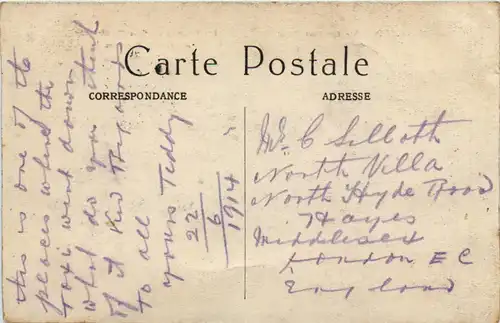 Carte Postale
CORRESPONDANCE
ADRESSE
this is one of the
places where the
Taxi went down
what do you think
of it Kid
to all
yours Teddy
22
6
1914
Mr C Silloth
North Villa
North Hyde Road
Hayes
Middlesex
London E C
England